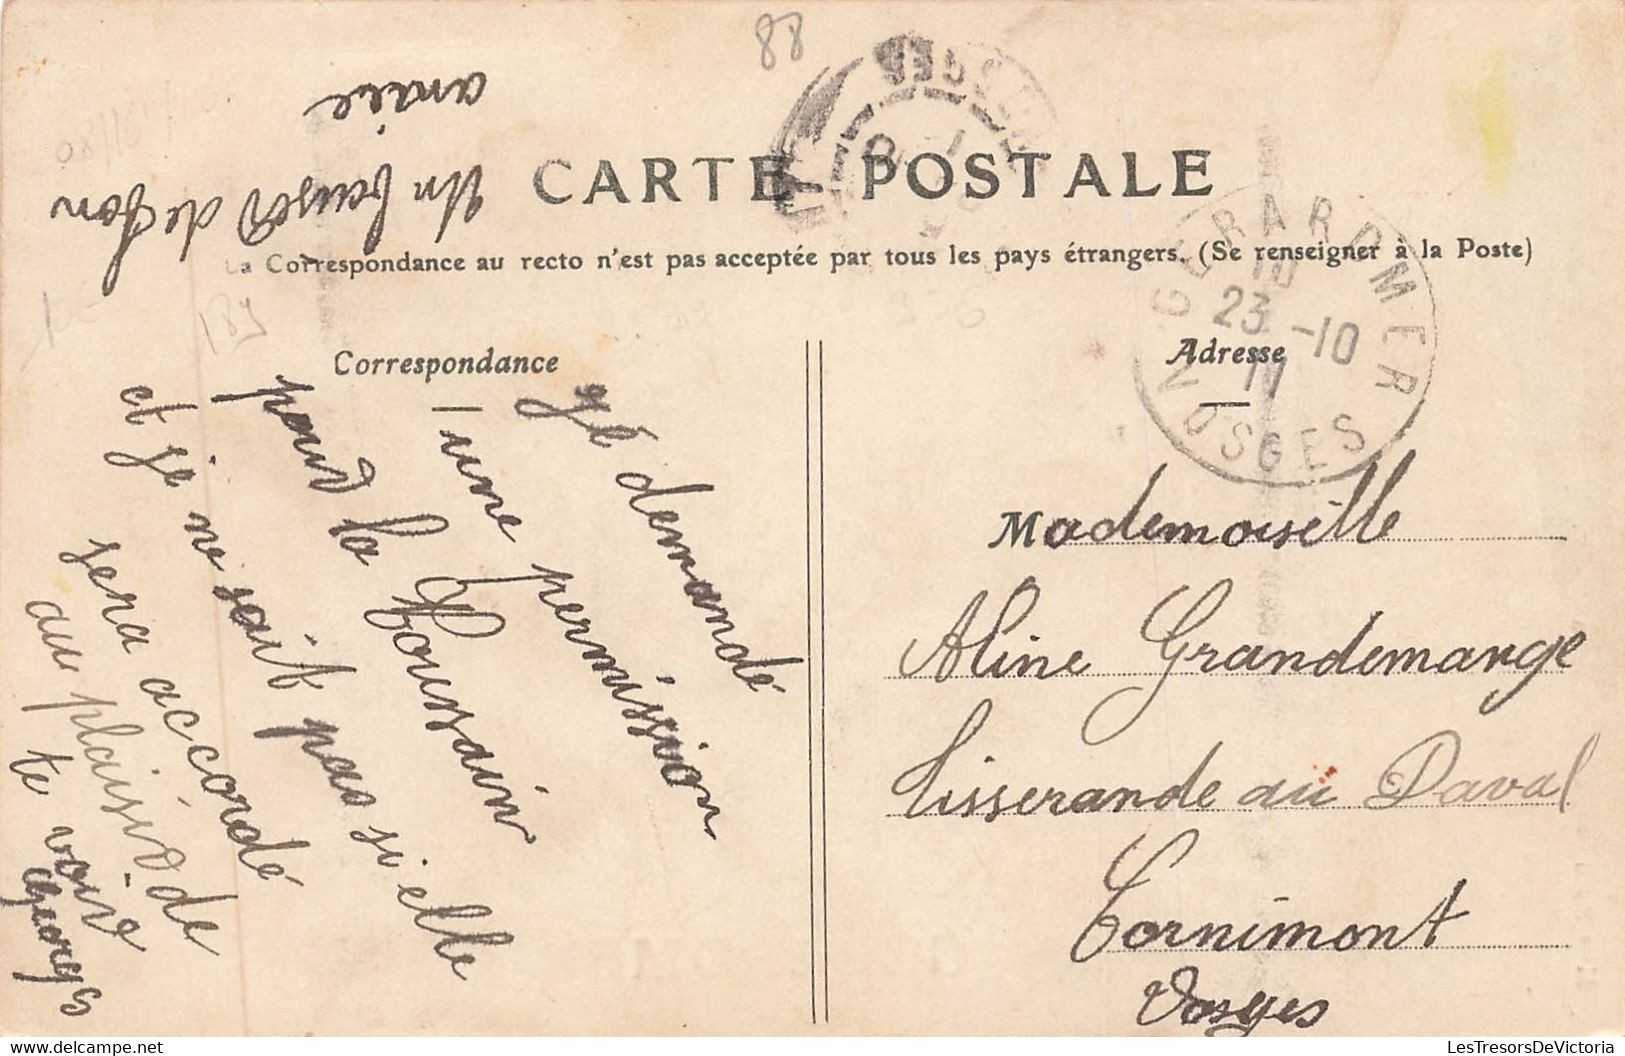 88
CARTE POSTALE
La Correspondance au recto n'est pas acceptée par tous les pays étrangers. (Se renseigner à la Poste)
Correspondance
Adresse
GERARDMER
10
23 -10
11
VOSGES
VOSGES
189
Je demandé
une permission
pour la Toussain
et je ne sait pas si elle
sera accordé
au plaisir de
te voire
Georges
Un baiser de ton
amie
Mademoiselle
Aline Grandemange
tisserande au Daval
Cornimont
Vosges
LesTresorsDeVictoria